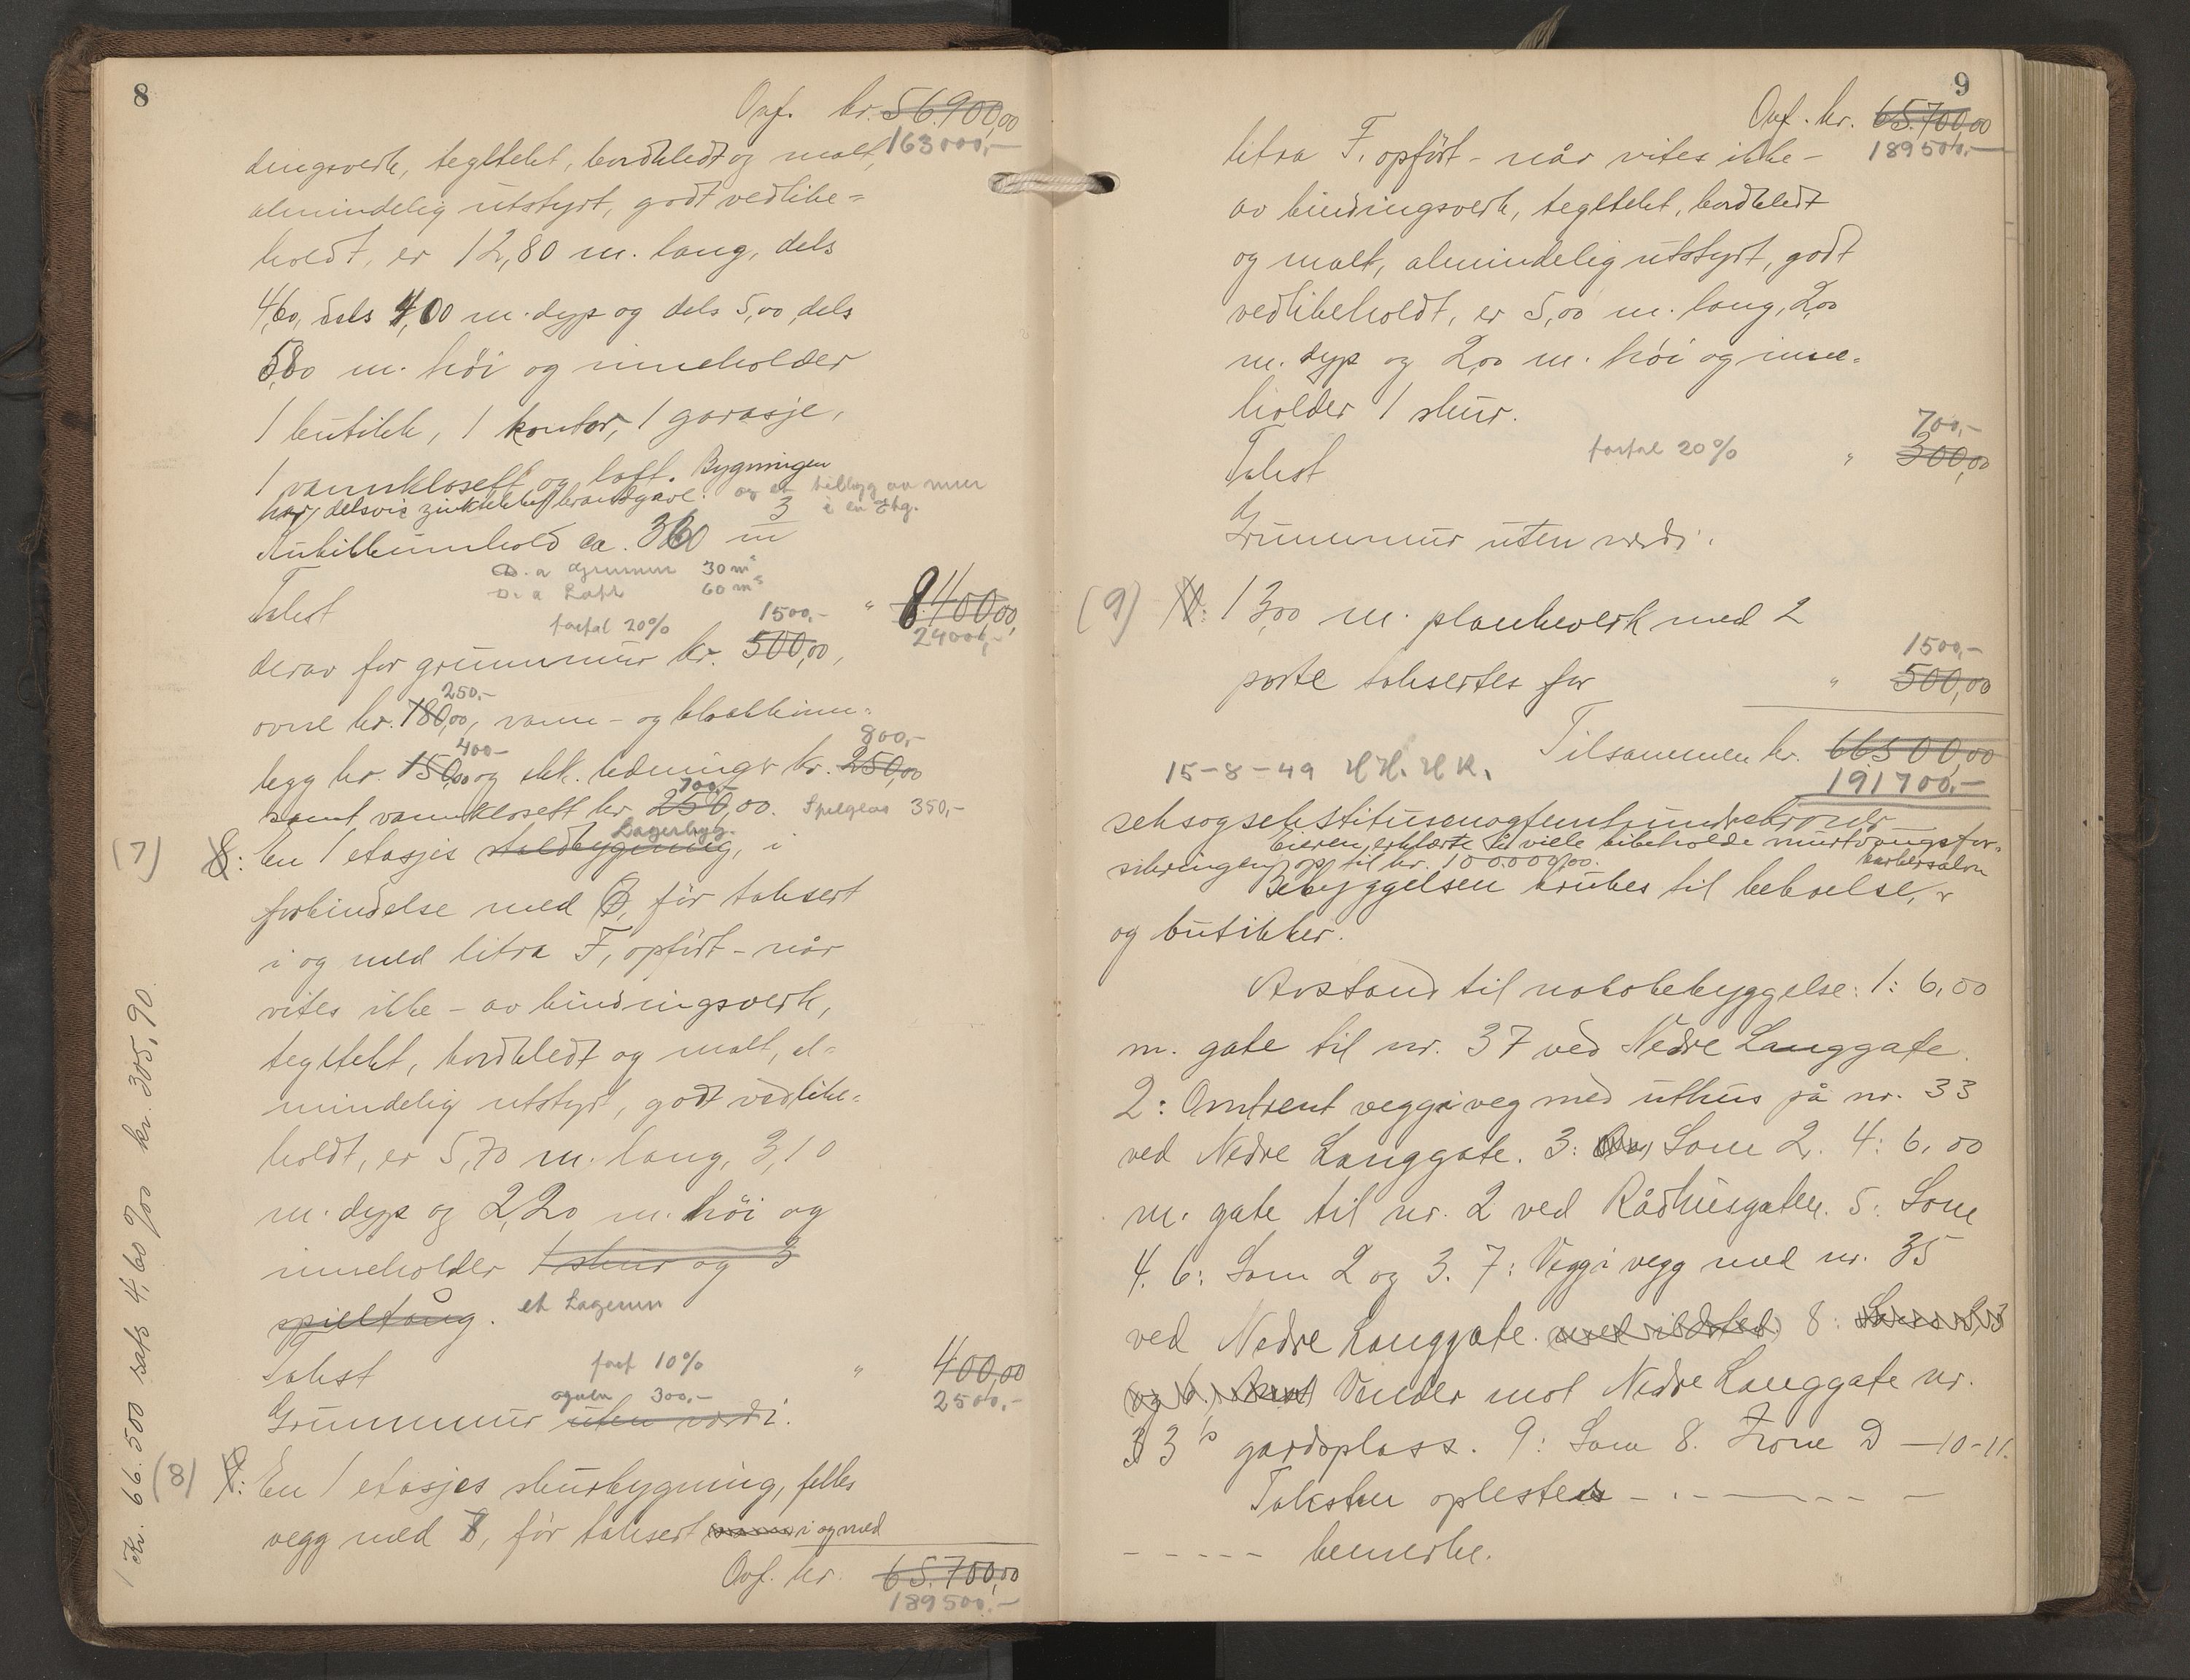 8
Ovf. kr. 56.900,00
163000,-
dingsverk, tegltekt, bordkledt og malt,
almindelig utstyrt, godt vedlike=
holdt, er 12,80 m. lang, dels
4,60, dels 4,00 m. dyp og dels 5,00, dels
5,80 m. höi og inneholder
1 butikk, 1 kontor, 1 garasje,
1 vannklosett og loft. Bygningen
har delsvis zinktekket brandgavl. og et tilbygg av mur
i en Etg.
Kubikkinnhold ca. 360 m3
D. a Grunmur 30 m3
D. a Loft 60 m3
Takst " 8.400,00
forfal 20% 1500,- 24000,-
derav for grunnmur kr. 500,00,
250,-
ovne kr. 180,00, vann- og kloakkinn=
400- 800,-
legg kr. 150,00 og elek. ledninger kr. 250,00
700,-
samt vannklosett kr. 250,00. Speilglas 350,-
Lagerbyg.
(7) G: En 1 etasjes stallbygning, i
forbindelse med , för taksert
i og med litra F, opfört - når
vites ikke - av bindingsverk,
tegltekt, bordkledt og malt, al=
mindelig utstyrt, godt vedlike=
holdt, er 5,70 m. lang, 3,10
m. dyp og 2,20 m. höi og
inneholder 1 skur og 3
spilltaug. et Lagerrum
Takst forf 10% " 400,00
ogsaa 300,- 2500,-
Grunnmur uten verdi.
(8) : En 1 etasjes skurbygning, felles
vegg med , för taksert i og med
Ovf. kr. 65.700,00
189500,-
1 Kr. 66.500 sats 4,60 ‰ kr. 305,90.
9
Ovf. kr. 65.700,00
189500,-
litra F, opfört - når vites ikke -
av bindingsverk, tegltekt, bordkledt
og malt, almindelig utstyrt, godt
vedlikeholdt, er 5,00 m. lang, 2,00
m. dyp og 2,00 m. höi og inne=
holder 1 skur.
700,-
Takst forfal 20% " 300,00
Grunnmur uten verdi.
(9) : 13,00 m. plankeverk med 2
1500,-
porte takseres for " 500,00
Tilsammen kr. 66500,00
15-8-49 H H. H K. 191700,-
seksogsekstitusenogfemhundrekroner
Eieren erklærte å ville bibeholde murtvangsfor=
sikringen op til kr. 100.000,00.
barbersalon
Bebyggelsen brukes til beboelse,
og butikker.
Avstand til nabobebyggelse: 1: 6,00
m. gate til nr. 37 ved Nedre Langgate.
2: Omtrent vegg i veg med uthus på nr. 33
ved Nedre Langgate. 3: Som 2. 4: 6,00
m. gate til nr. 2 ved Rådhusgaten. 5: Som
4. 6: Som 2 og 3. 7: Vegg i vegg med nr. 35
ved Nedre Langgate. med ildsted 8: Som 2, 3
og 6. Vender mot Nedre Langgate nr.
33 b gårdsplass. 9: Som 8. Zone D - 10-11.
Taksten oplestes - . - — - - -
- - - - - bemerke.